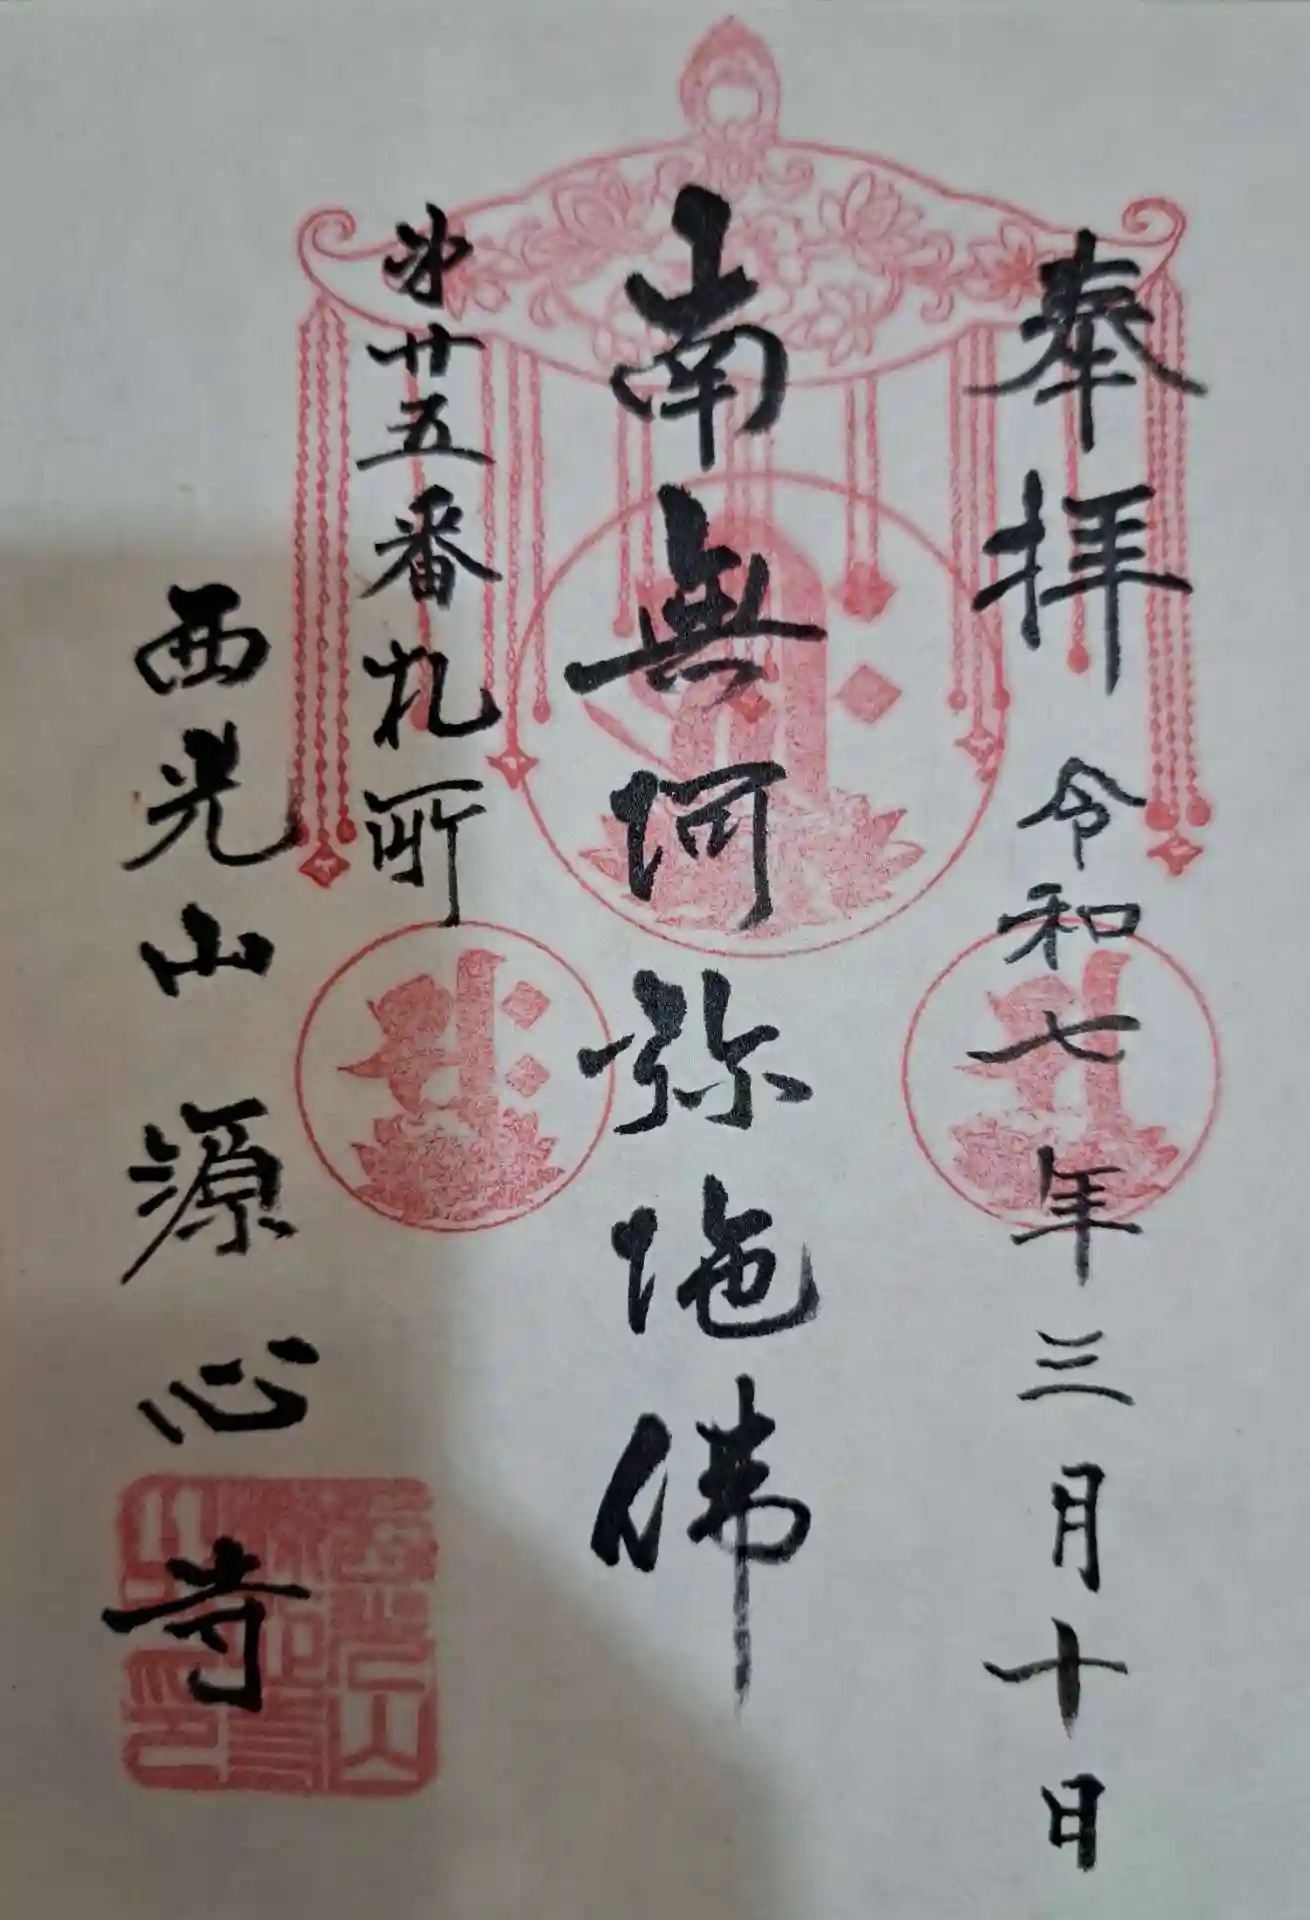 奉拝 令和七年三月十日
南無阿弥陀佛
第廿五番札所
西光山源心寺